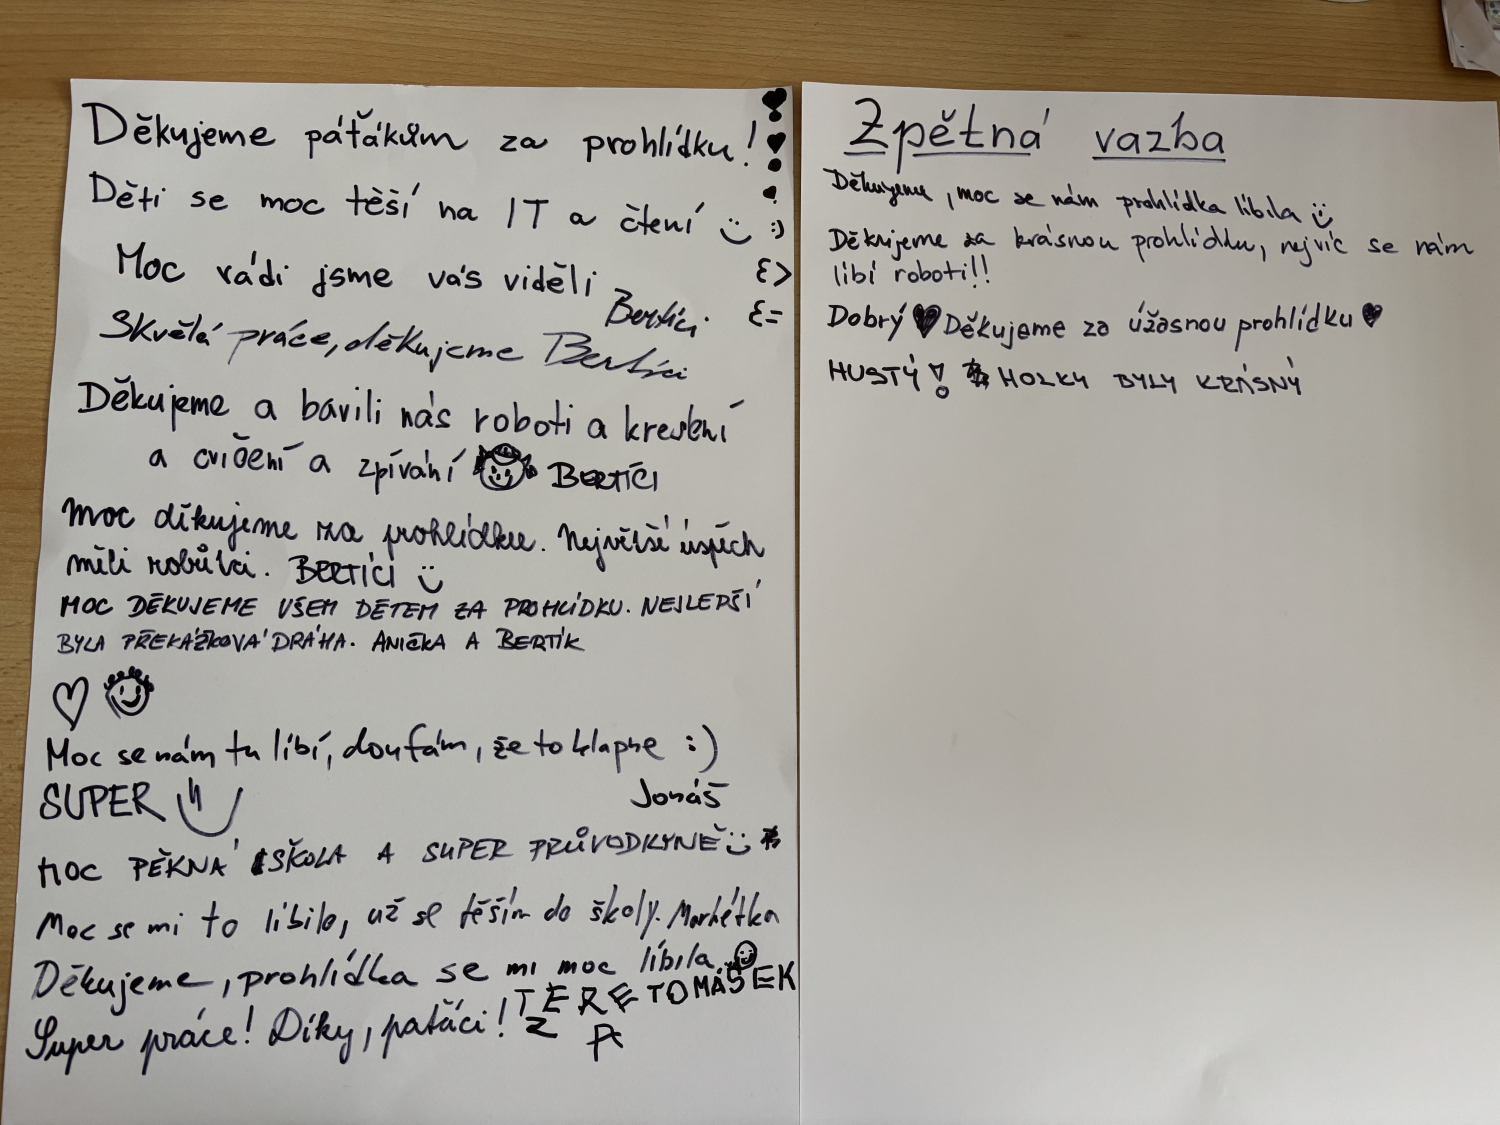 Děkujeme páťákům za prohlídku!
Děti se moc těší na IT a čtení :)
Moc rádi jsme vás viděli
Bertíci.
Skvělá práce, děkujeme Bertíci
Děkujeme a bavili nás roboti a kreslení
a cvičení a zpívání BERTÍCI
Moc děkujeme za prohlídku. Největší úspěch
měli robůtci. BERTÍCI
MOC DĚKUJEME VŠEM DĚTEM ZA PROHLÍDKU. NEJLEPŠÍ
BYLA PŘEKÁŽKOVÁ DRÁHA. ANIČKA A BERTÍK
Moc se nám tu líbí, doufám, že to klapne :)
SUPER
Jonáš
MOC PĚKNÁ ŠKOLA A SUPER PRŮVODKYNĚ
Moc se mi to líbilo, už se těším do školy. Markétka
Děkujeme, prohlídka se mi moc líbila.
TEREZA TOMÁŠEK
Super práce! Díky, paťáci!
Zpětná vazba
Děkujeme, moc se nám prohlídka líbila
Děkujeme za krásnou prohlídku, nejvíc se nám
líbí roboti!!
Dobrý Děkujeme za úžasnou prohlídku
HUSTÝ! HOLKY BYLY KRÁSNÝ